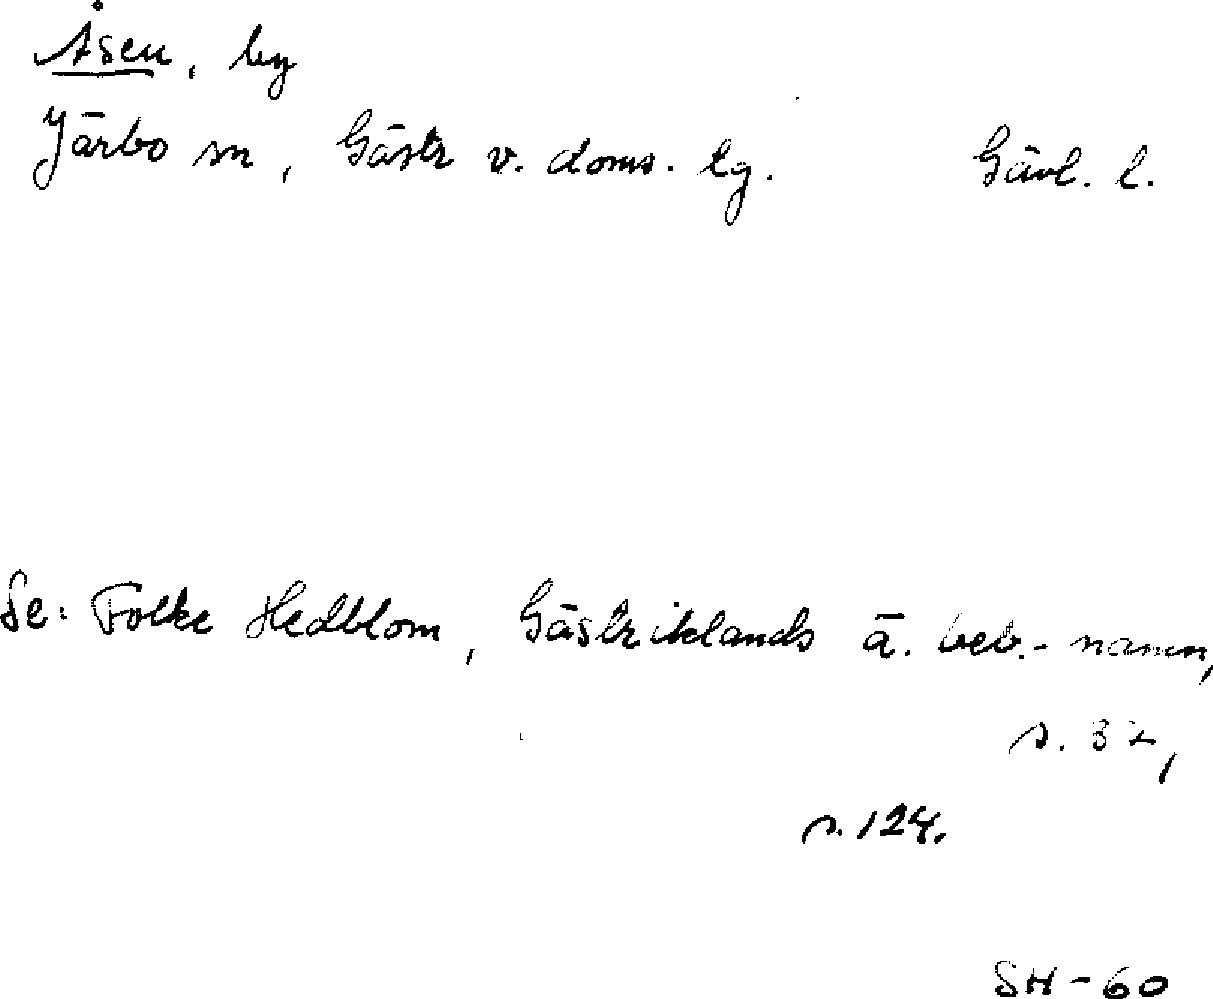 Åsen, by
Järbo sn, Gästr v. doms. lg. Gävl. l.
Se: Folke Hedblom, Gästriklands ä. beb.-namn,
s. 32,
s. 124.
SH-60